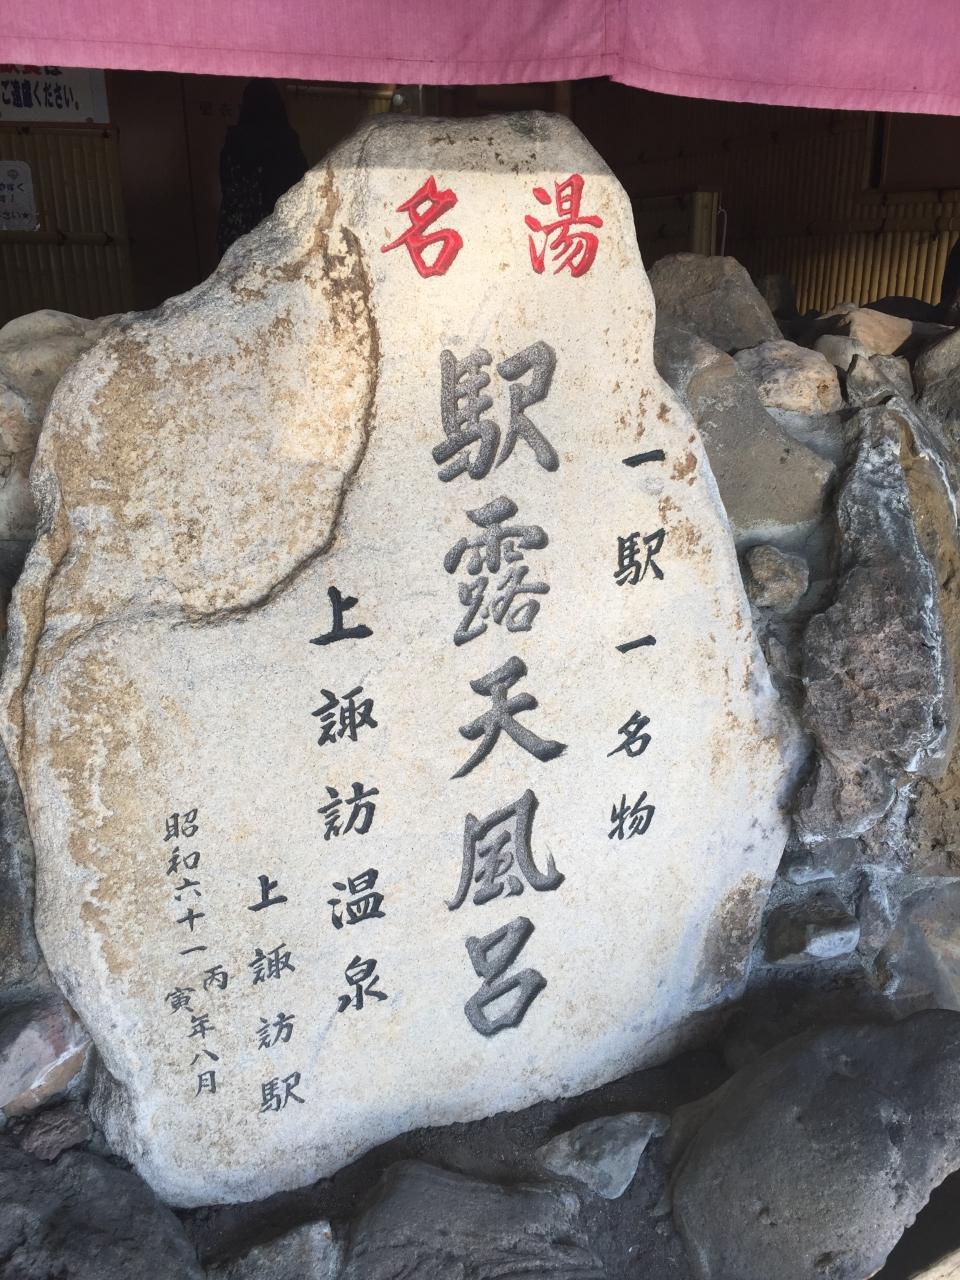 名湯
一駅一名物
駅露天風呂
上諏訪温泉
上諏訪駅
昭和六十一丙寅年八月
ご遠慮ください。